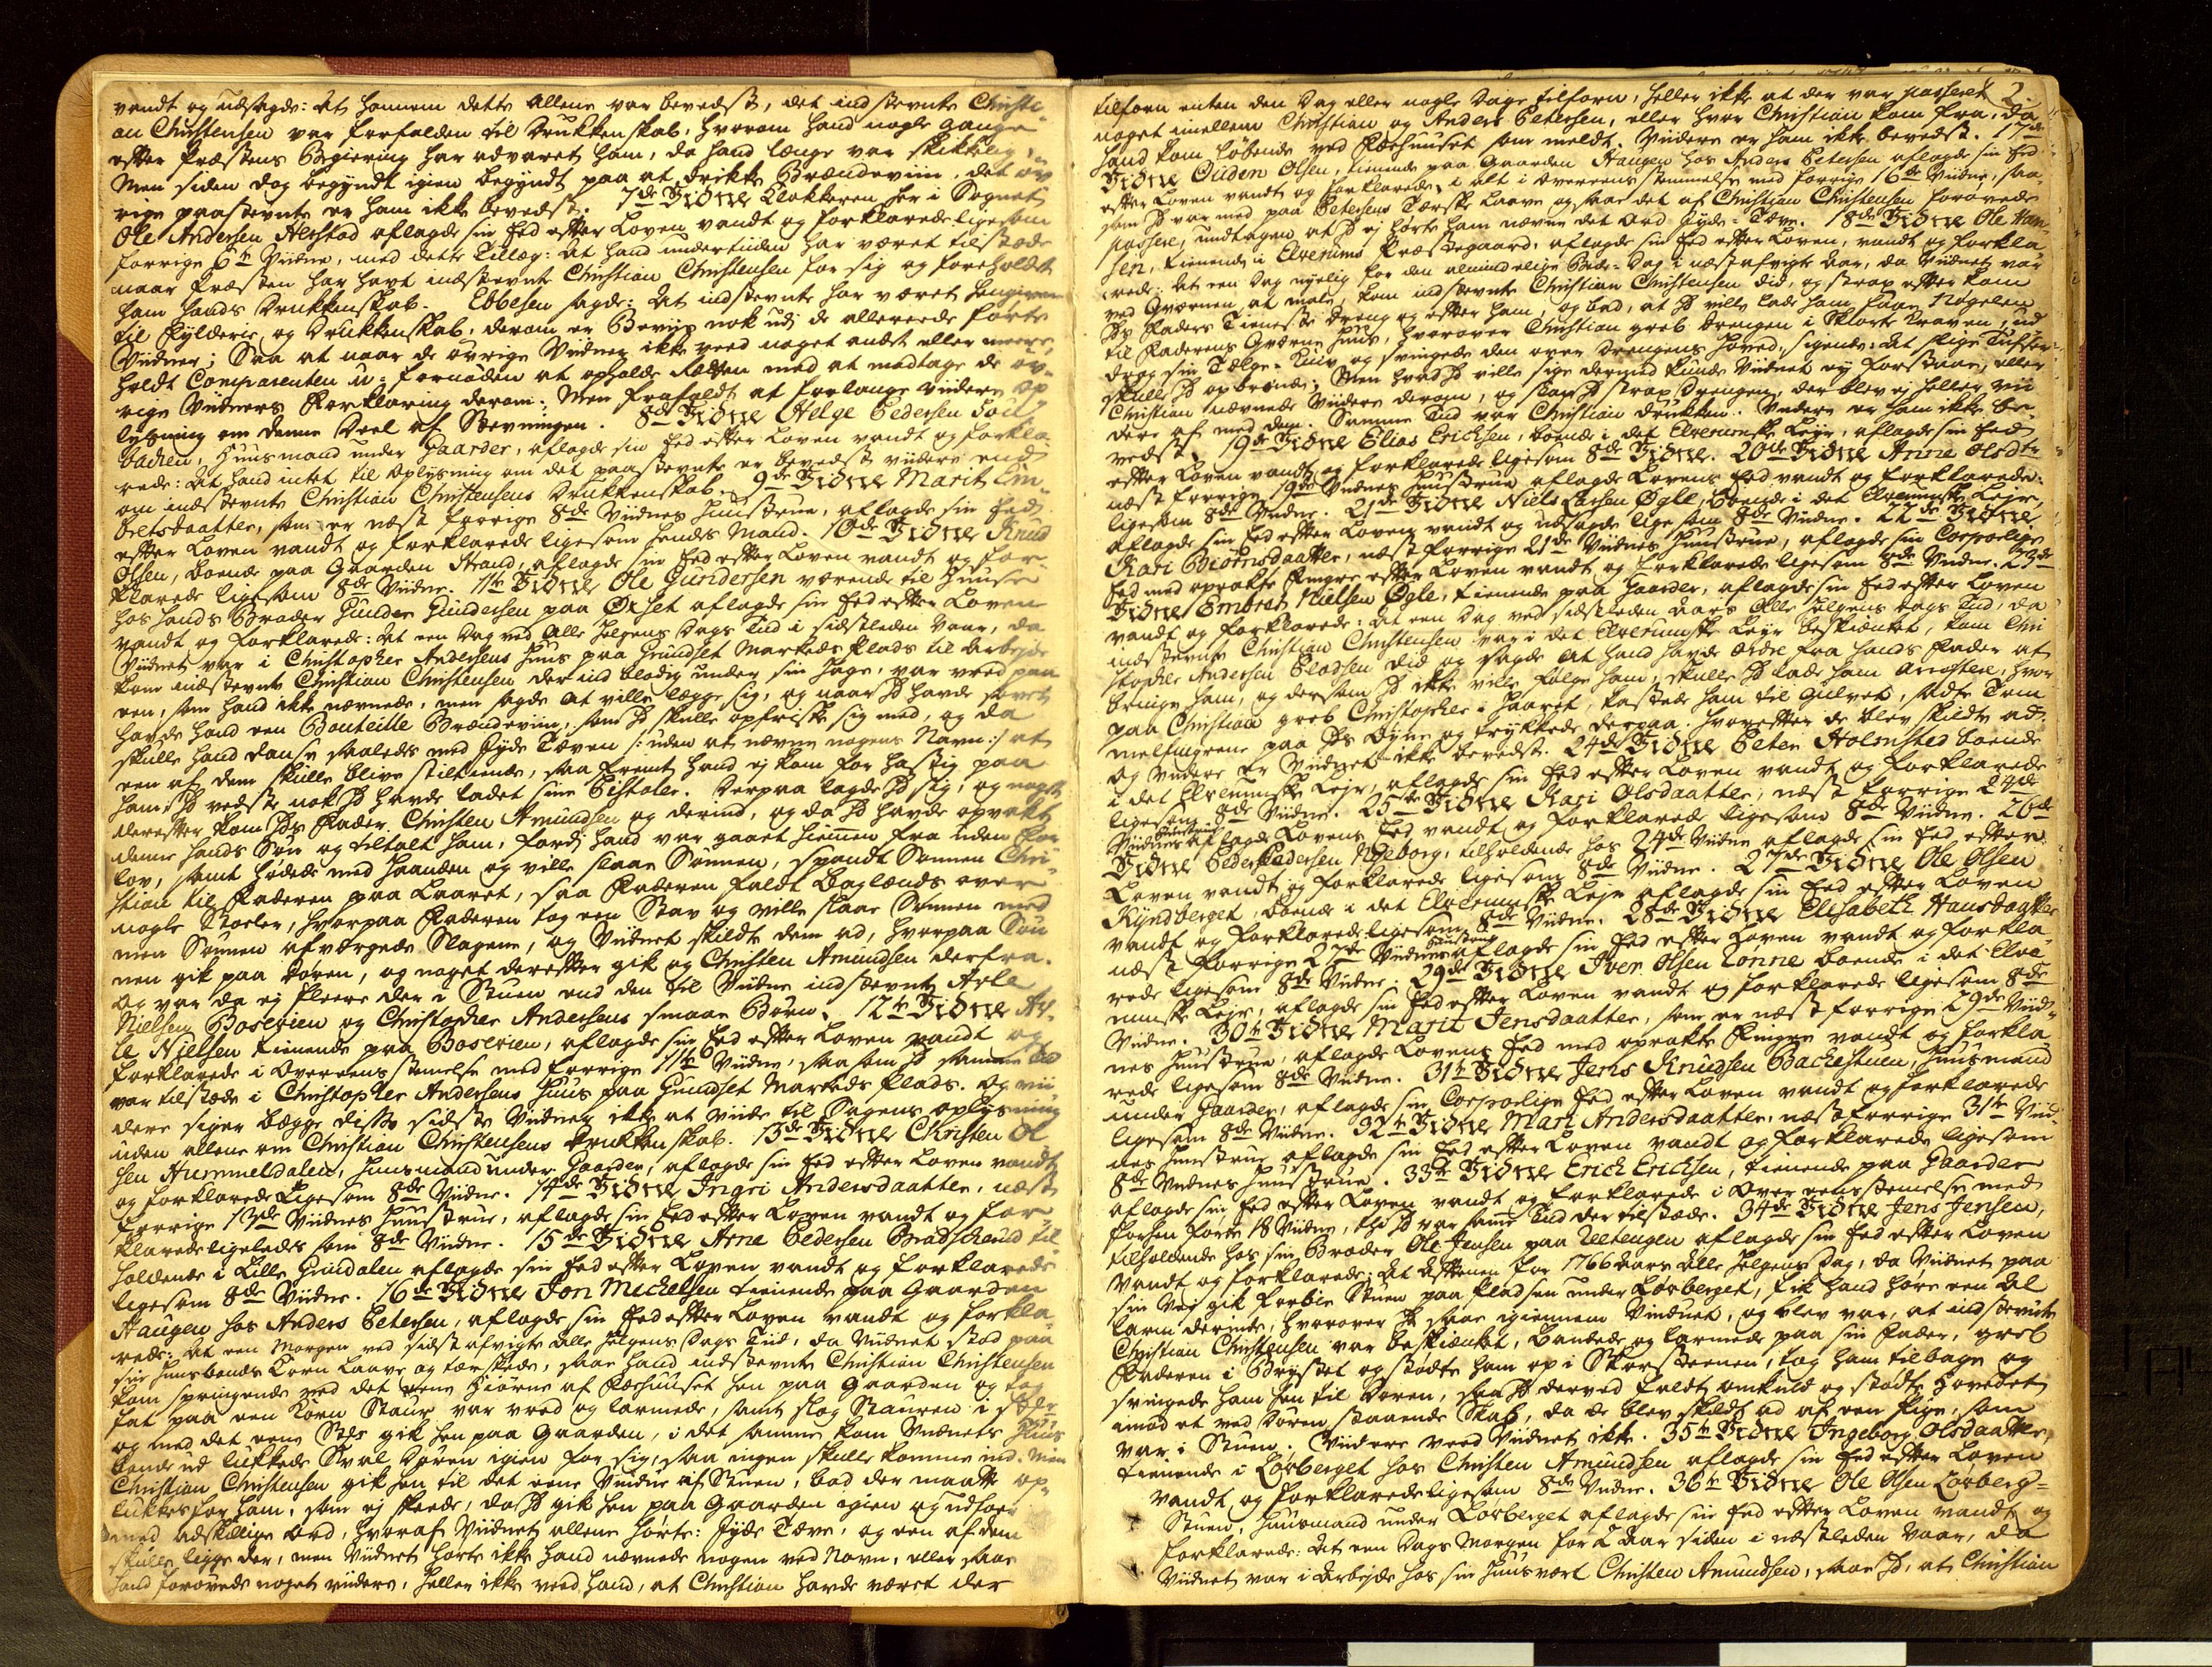 vandt og udsagde: At hannem dette allene var bevedst, det indstevnte Christi-
an Christensen var forfalden til Drukkenskab, hvorom hand nogle gange
efter Præstens Begiering har advaret ham, da hand længe var skikkelig,
men siden dog begyndt igien begyndt paa at drikke Brændeviin, det øv-
rige paastevnte er ham ikke bevedst. 7de Vidne Klokkeren her i Sognet
Ole Andersen Herstad aflagde sin Eed efter Loven vandt og forklarede ligesom
forrige 6te Vidne, med dette Tillæg: At hand undertiiden har været tilstæde
naar Præsten har havt indstevnte Christian Christensen for sig og foreholdt
ham hands Drukkenskab. Ebbesen sagde: At indstevnte har været hengiven
til Fylderie og Drukkenskab, derom er Beviis nok udi de allereede førte
Vidner; Saa at naar de øvrige Vidner ikke veed noget andet eller meere,
holdt Comparenten u-fornøden at opholde Retten med at modtage de øv-
rige Vidners Forklaring derom; Men frafaldt at forlange viidere Op-
lysning om denne Deel af Stevningen. 8de Vidne Helge Pedersen Sou-
bachen, Huusmand under Gaarder, aflagde sin Eed efter Loven vandt og forkla-
rede: At hand intet til Oplysning om det paastevnte er bevedst viidere end
om indstevnte Christian Christensens Drukkenskab. 9de Vidne Marit Em-
bretsdaatter, som er næst forrige 8de Vidnes Huustrue, aflagde sin Eed
efter Loven vandt og forklarede ligesom hendes Mand. 10de Vidne Knud
Olsen, boende paa Gaarden Strand, aflagde sin Eed efter Loven vandt og for-
klarede ligesom 8de Vidne. 11te Vidne Ole Gundersen værende til Huuse
hos hands Broder Gunder Gundersen paa Øxset aflagde sin Eed efter Loven
vandt og forklarede: At een Dag ved Alle Helgens Dags Tid i sidstleden Aar, da
Vidnet var i Christopher Andersens Huus paa Grundset Markeds Plads til Arbejde
kom indstevnte Christian Christensen der ind blodig under sin Hage, var vred paa
een, som hand ikke nævnede, men sagde at ville lægge sig, og naar Hd havde sovet
havde hand een Bouteille Brændeviin, som Hd skulle opfriske sig med, og da
skulle hand danse saaledes med Jyde Tæven /: uden at nævne nogens Navn :/ at
een af dem skulle blive stiltiende, saa fremt hand ej kom for hastig paa
ham, Hd vedste nok Hd havde ladet sine Pistoler. Derpaa lagde Hd sig, og noget
derefter kom Hds Fader Christen Amundsen og derind, og da Hd havde opvakt
denne hands Søn og tiltalt ham, fordi hand var gaaet hiemmen fra uden For-
lov, samt høde med Haanden og ville slaae Sønnen, spandt Sønnen Chri-
stian til Faderen paa Laaret, saa Faderen faldt Baglænds over
nogle Stoeler, hvorpaa Faderen tog een Stav og ville slaae Sønnen med
men Sønnen afværgede Slagene, og Vidnet skildte dem ad, hvorpaa Søn-
nen gik paa Døren, og noget derefter gik og Christen Amundsen derfra.
Og var da ej fleere der i Stuen end den til Vidne indstevnte Arle
Nielsen Boserien og Christopher Andersens smaae Børn. 12te Vidne Ar-
le Nielsen tienende paa Boserien, aflagde sin Eed efter Loven vandt og
forklarede i Overeensstemmelse med forrige 11te Vidne, saasom Hd samme tid
var tilstæde i Christopher Andersens Huus paa Grundset Markeds Plads. Og vii-
dere siger bægge disse sidste Vidner ikke at viide til Sagens oplysning
uden allene om Christian Christensens Drukkenskab. 13de Vidne Christen Ol-
sen Hummeldalen, Huusmand under Gaarder, aflagde sin Eed efter Loven vandt
og forklarede ligesom 8de Vidne. 14de Vidne Ingri Andersdaatter, næst
forrige 13de Vidnes Huustrue, aflagde sin Eed efter Loven vandt og for-
klarede ligeledes som 8de Vidne. 15de Vidne Arne Pedersen Bradschend til-
holdende i Lille Grundalen aflagde sin Eed efter Loven vandt og forklarede
ligesom 8de Vidne. 16de Vidne Jon Michelsen tienende paa Gaarden
Haugen hos Anders Petersen, aflagde sin Eed efter Loven vandt og forkla-
rede: At een Morgen ved sidst afvigte Alle Helgens Dags Tiid, da Vidnet stod paa
sin Huusbonds Korn Laave og tærskede, saae hand indstevnte Christian Christensen
kom springende ved det eene Hiørne af Fæehuuset hen paa Gaarden og tog
fat paa een Korn Staur var vred og larmede, samt slog Stauren i
og med det eene gik hen paa Gaarden, i det samme kom Vidnets Huus
bonde ud lukkede Sval Døren igien for sig, saa ingen skulle komme ind. Men
Christian Christensen gik hen til det eene Vindue af Stuen, bad der maatte op-
lukkes for ham, som ej skeede, da Hd gik hen paa Gaarden igien og udskor
med adskillige Ord, hvoraf Vidnet allene hørte: Jyde Tæve, og een af dem
skulle ligge der, men Vidnet hørte ikke hand nævnede nogen ved Navn, eller saae
hand forøvede noget viidere, heller ikke veed hand, at Christian havde været der
2.
tilforn enten den Dag eller nogle Dage tilforn, heller ikke at der var passeret
noget imellem Christian og Anders Petersen, eller hvor Christian kom fra, da
hand kom løbende ved Fæehuuset som meldt. Viidere er ham ikke bevedst. 17de
Vidne Ouden Olsen, tienende paa Gaarden Haugen hos Anders Petersen aflagde sin Eed
efter Loven vandt og forklarede i alt i Overeensstemmelse med forrige 16de Vidne, saa-
som Hd var med paa Petersens Tærske Laave og saae det af Christian Christensen forøvede
passere, undtagen at Hd ej hørte ham nævne det Ord Jyde-Tæve. 18de Vidne Ole Han-
sen, tienende i Elverums Præstegaard, aflagde sin Eed efter Loven, vandt og forkla-
rede: At een Dag nyelig for den almindelige Bede-Dag i næst afvigte Aar, da Vidnet var
ved Qværnen at male, kom indstevnte Christian Christensen did, og strax efter kom
Hs Faders Tieneste Dreng og efter ham, og bad, at Hd ville lade ham faae Nøgelen
til Faderens Qværne Huus, hvorover Christian greb Drengen i Skiorte Kraven, ud
drog sin Tælge-Kniv og svingede den over Drengens Hoved, sigende: det
skulle Hd opbrænde; Men hvad Hd ville sige dermed kunde Vidnet ej forstaae, eller
Christian nævnede viidere derom, og slap Hd strax Drengen, der blev ej heller vii-
dere af med dem. Samme Tid var Christian drukken. Viidere er ham ikke be-
vedst. 19de Vidne Elias Erichsen, boende i det Elverumske Leyr, aflagde sin Eed
efter Loven vandt og forklarede ligesom 8de Vidne. 20de Vidne Anne Olsdtr
næst forrige 19de Vidnes Huustrue aflagde Lovens Eed vandt og forklarede
ligesom 8de Vidne. 21de Vidne Niels Larsen Øgle, boende i det Elverumske Leyr,
aflagde sin Eed efter Loven vandt og udsagde ligesom 8de Vidne. 22de Vidne
Kari Biörnsdaatter, næst forrige 21de Vidnes Huustrue, aflagde sin Corporlige
Eed med oprakte Fingre efter Loven vandt og forklarede ligesom 8de Vidne. 23de
Vidne Embret Nielsen Øgle, tienende paa Gaarder, aflagde sin Eed efter Loven
vandt og forklarede: At een Dag ved sidstleden Aars Alle Helgens Dags Tid, da
indstevnte Christian Christensen var i det Elverumske Leyr beskienket, kom Chri
stopher Andersen Pladsen did og sagde at hand havde Ordre fra hands Fader at
bringe ham, og dersom Hd ikke ville følge ham, skulle Hd lade ham arrestere, hvor
paa Christian greb Christopher i Haaret, kastede ham til Gulvet, satte Tom
melfingrene paa Hs Øyne og trykkede derpaa. Hvorefter de blev skildt ad.
Og viidere er Vidnet ikke bevedst. 24de Vidne Peter Holmsted boende
i det Elverumske Leyr, aflagde sin Eed efter Loven vandt og forklarede
ligesom 8de Vidne. 25de Vidne Kari Olsdaatter, næst forrige 24de
Vidnes Huustrue aflagde Lovens Eed vandt og forklarede ligesom 8de Vidne. 26de
Vidne Peder Pedersen Ngeborg, tilholdende hos 24de Vidne aflagde sin Eed efter
Loven vandt og forklarede ligesom 8de Vidne. 27de Vidne Ole Olsen
Kyndberget, boende i det Elverumske Leyr aflagde sin Eed efter Loven
vandt og forklarede ligesom 8de Vidne. 28de Vidne Elisabeth Hansdaatter
næst forrige 27de Vidnes Huustrue aflagde sin Eed efter Loven vandt og forkla-
rede ligesom 8de Vidne. 29de Vidne Iver Olsen Lonne boende i det Elve-
rumske Leyr, aflagde sin Eed efter Loven vandt og forklarede ligesom 8de
Vidne. 30te Vidne Marit Jensdaatter, som er næst forrige 29de Vid-
nes Huustrue, aflagde Lovens Eed med oprakte Fingre vandt og forkla-
rede ligesom 8de Vidne. 31te Vidne Jens Knudsen Bachestuen, Huusmand
under Gaarder, aflagde sin Corporlige Eed efter Loven vandt og forklarede
ligesom 8de Vidne. 32te Vidne Mari Andersdaatter, næst forrige 31te Vid-
nes Huustrue aflagde sin Eed efter Loven vandt og forklarede ligesom
8de Vidnes Huustrue. 33te Vidne Erich Erichsen, tienende paa Gaarder
aflagde sin Eed efter Loven vandt og forklarede i Overeensstemelse med
forhen førte 18 Vidne, thi Hd var samme Tid der tilstæde. 34de Vidne Jens Jensen,
tilholdende hos sin Broder Ole Jensen paa Uetengen aflagde sin Eed efter Loven
vandt og forklarede: At Aftenen for 1766 Aars Alle Helgens Dag, da Vidnet paa
sin Vej gik forbie Stuen paa Pladsen under Lørberget, fik hand høre een Al
larm derinde, hvorover Hd saae igiennem Vinduet, og blev var, at indstevnte
Christian Christensen var beskienket, bandede og larmede paa sin Fader, greb
Faderen i Brystet og stødte ham op i Skorsteenen, tog ham tilbage og
svingede ham hen til Døren, saa Hd derved faldt omkuld og stødte Hovedet
imod et ved Døren staaende Skab, da de blev skildt ad af een Pige, som
var i Stuen. Viidere veed Vidnet ikke. 35te Vidne Ingeborg Olsdaatter,
tienende i Lørberget hos Christen Amundsen aflagde sin Eed efter Loven
vandt og forklarede ligesom 8de Vidne. 36te Vidne Ole Olsen Lørberg-
Stuen, Huusmand under Lørberget aflagde sin Eed efter Loven vandt og
forklarede: At een Dags Morgen for 2 Aar siden i næstleden Vaar, da
Vidnet var i Arbejde hos sin Huusvært Christen Amundsen, saae Hd, at Christian